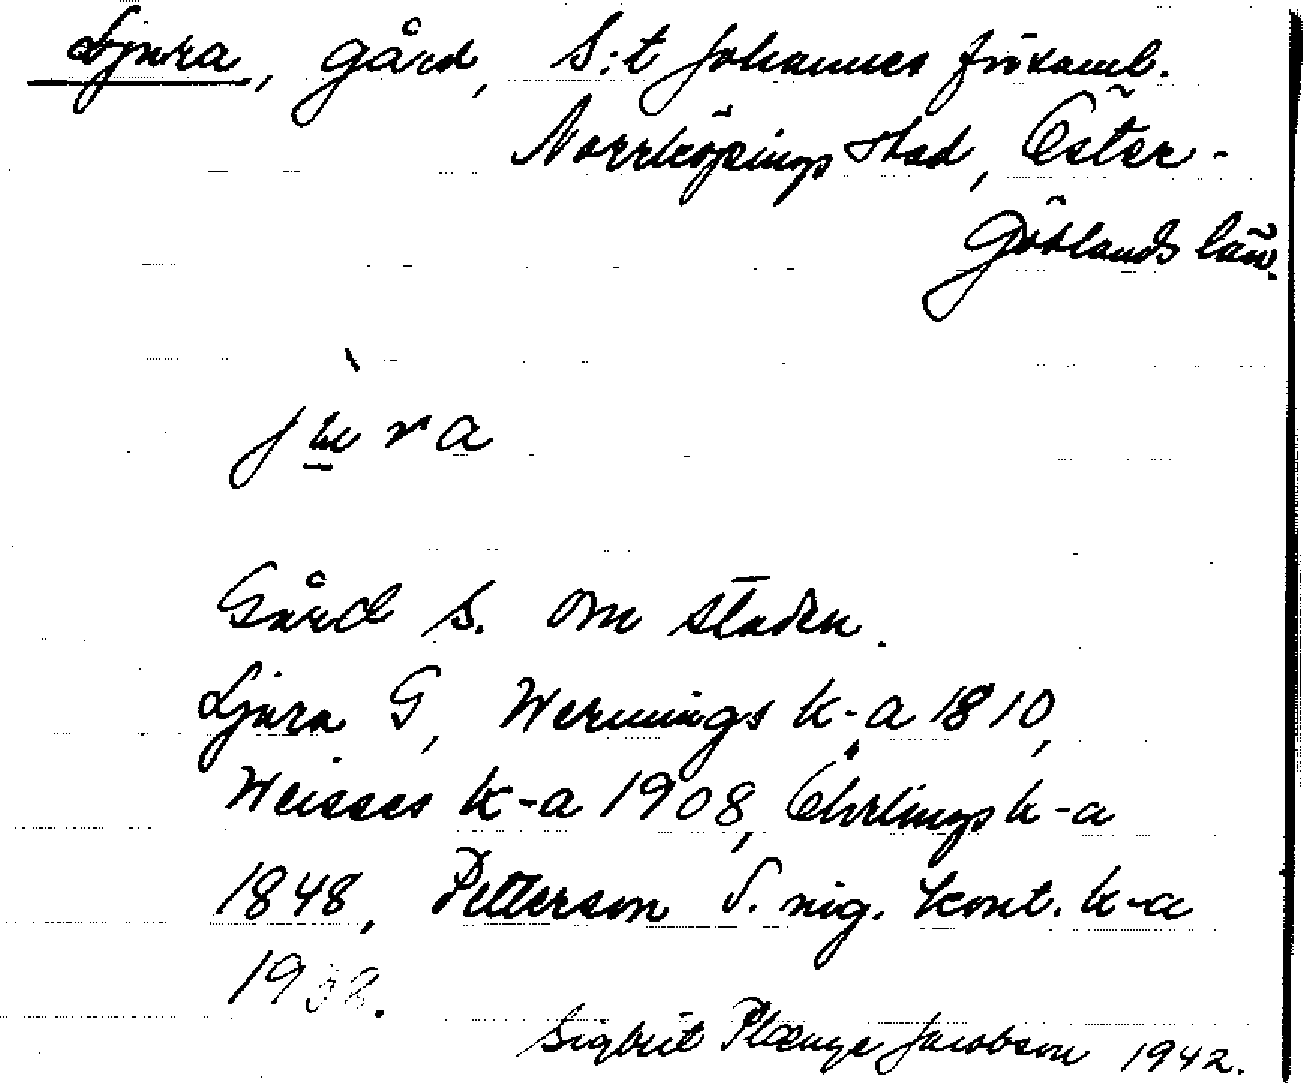 Ljura, gård, S:t Johannes församl.
Norrköpings stad, Öster-
götlands län.
jura
Gård S. om staden.
Ljura G, Wernings k-a 1810,
Weisses k-a 1908, Öhrlings k-a
1848, Petterson S. nig. kont. k-a
1938.
Sigbrit Plænge Jacobson 1942.